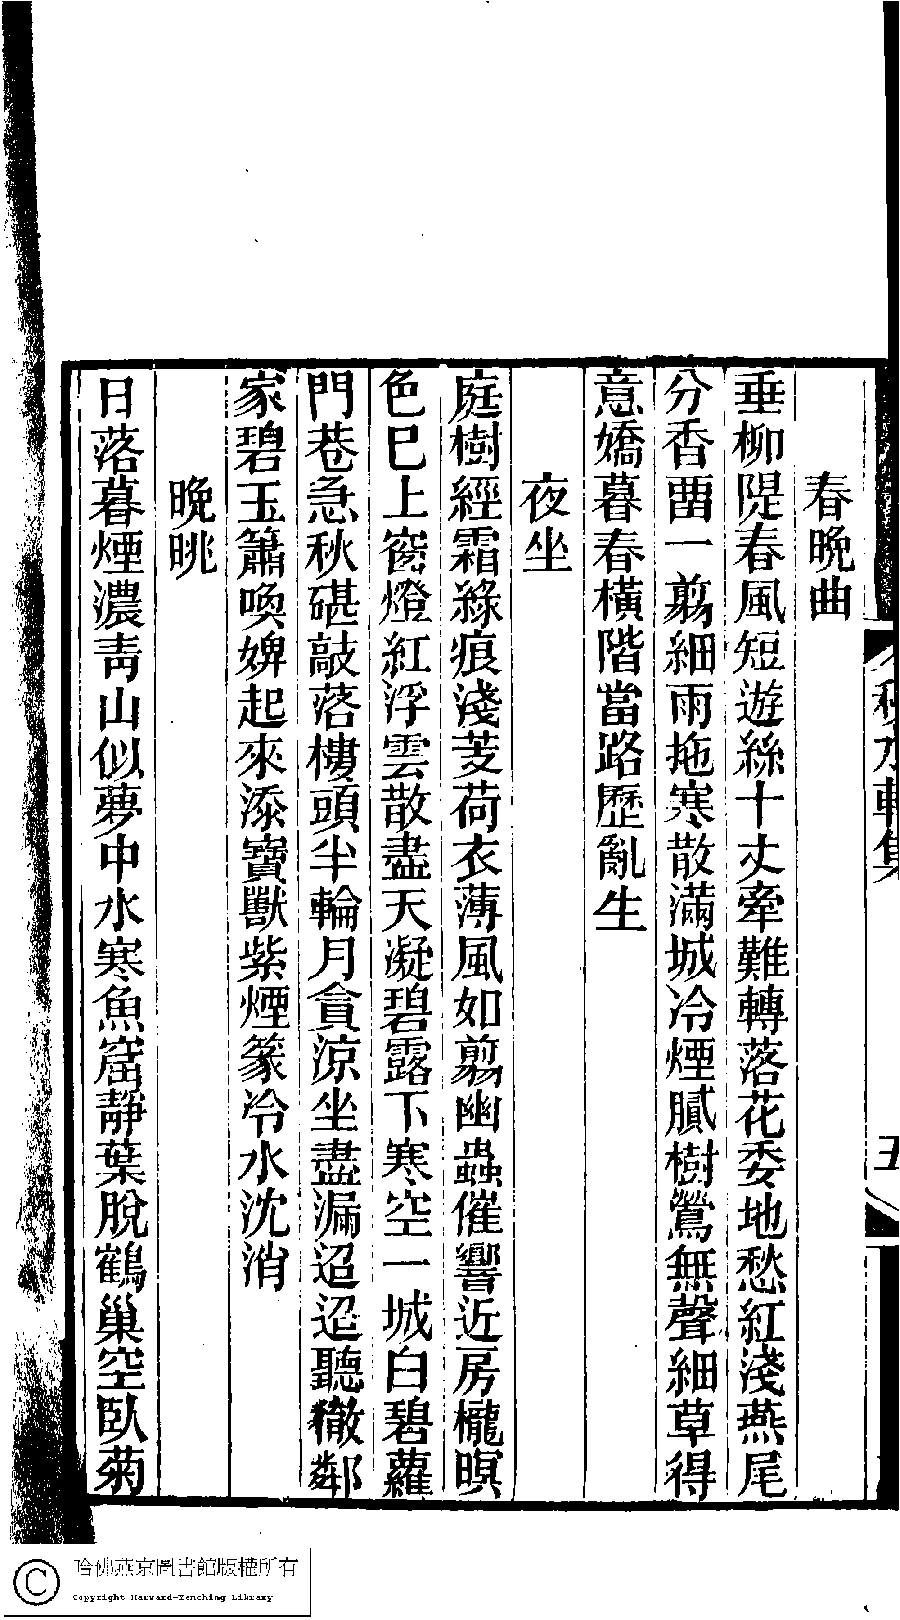 春晚曲
垂柳隄春風短遊絲十丈牽難轉落花委地愁紅淺燕尾
分香畱一剪細雨拖寒散滿城冷煙膩樹鶯無聲細草得
意嬌暮春橫階當路歷亂生
夜坐
庭樹經霜綠痕淺芰荷衣薄風如剪幽蟲催響近房櫳暝
色巳上窗燈紅浮雲散盡天凝碧露下寒空一城白碧蘿
門巷急秋碪敲落樓頭半輪月貪涼坐盡漏迢迢聽徹鄰
家碧玉簫喚婢起來添寶獸紫煙篆冷水沈消
晚眺
日落暮煙濃青山似夢中水寒魚窟靜葉脫鶴巢空臥菊
秋水軒集
五
哈佛燕京圖書館版權所有
Copyright Harvard-Yenching Library